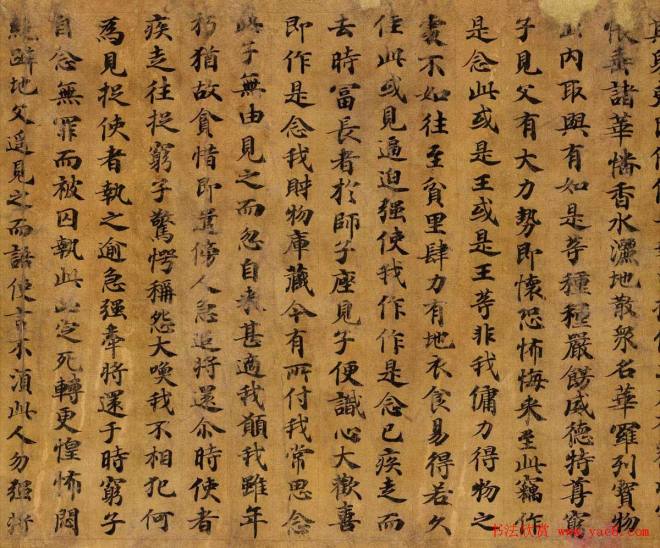 帳垂諸華幡香水灑地散衆名華羅列寶物
出内取與有如是等種種嚴飾威德特尊窮
子見父有大力勢即懷恐怖悔来至此竊作
是念此或是王或是王等非我傭力得物之
處不如往至貧里肆力有地衣食易得若久
住此或見逼迫强使我作作是念已疾走而
去時富長者於師子座見子便識心大歡喜
即作是念我財物庫藏今有所付我常思念
此子無由見之而忽自来甚適我願我雖年
朽猶故貪惜即遣傍人急追將還尒時使者
疾走往捉窮子驚愕稱怨大喚我不相犯何
為見捉使者執之逾急强牽將還于時窮子
自念無罪而被囚執此必定死轉更惶怖悶
絶躃地父遥見之而語使言不須此人勿强將
书法欣赏 www.yac8.com